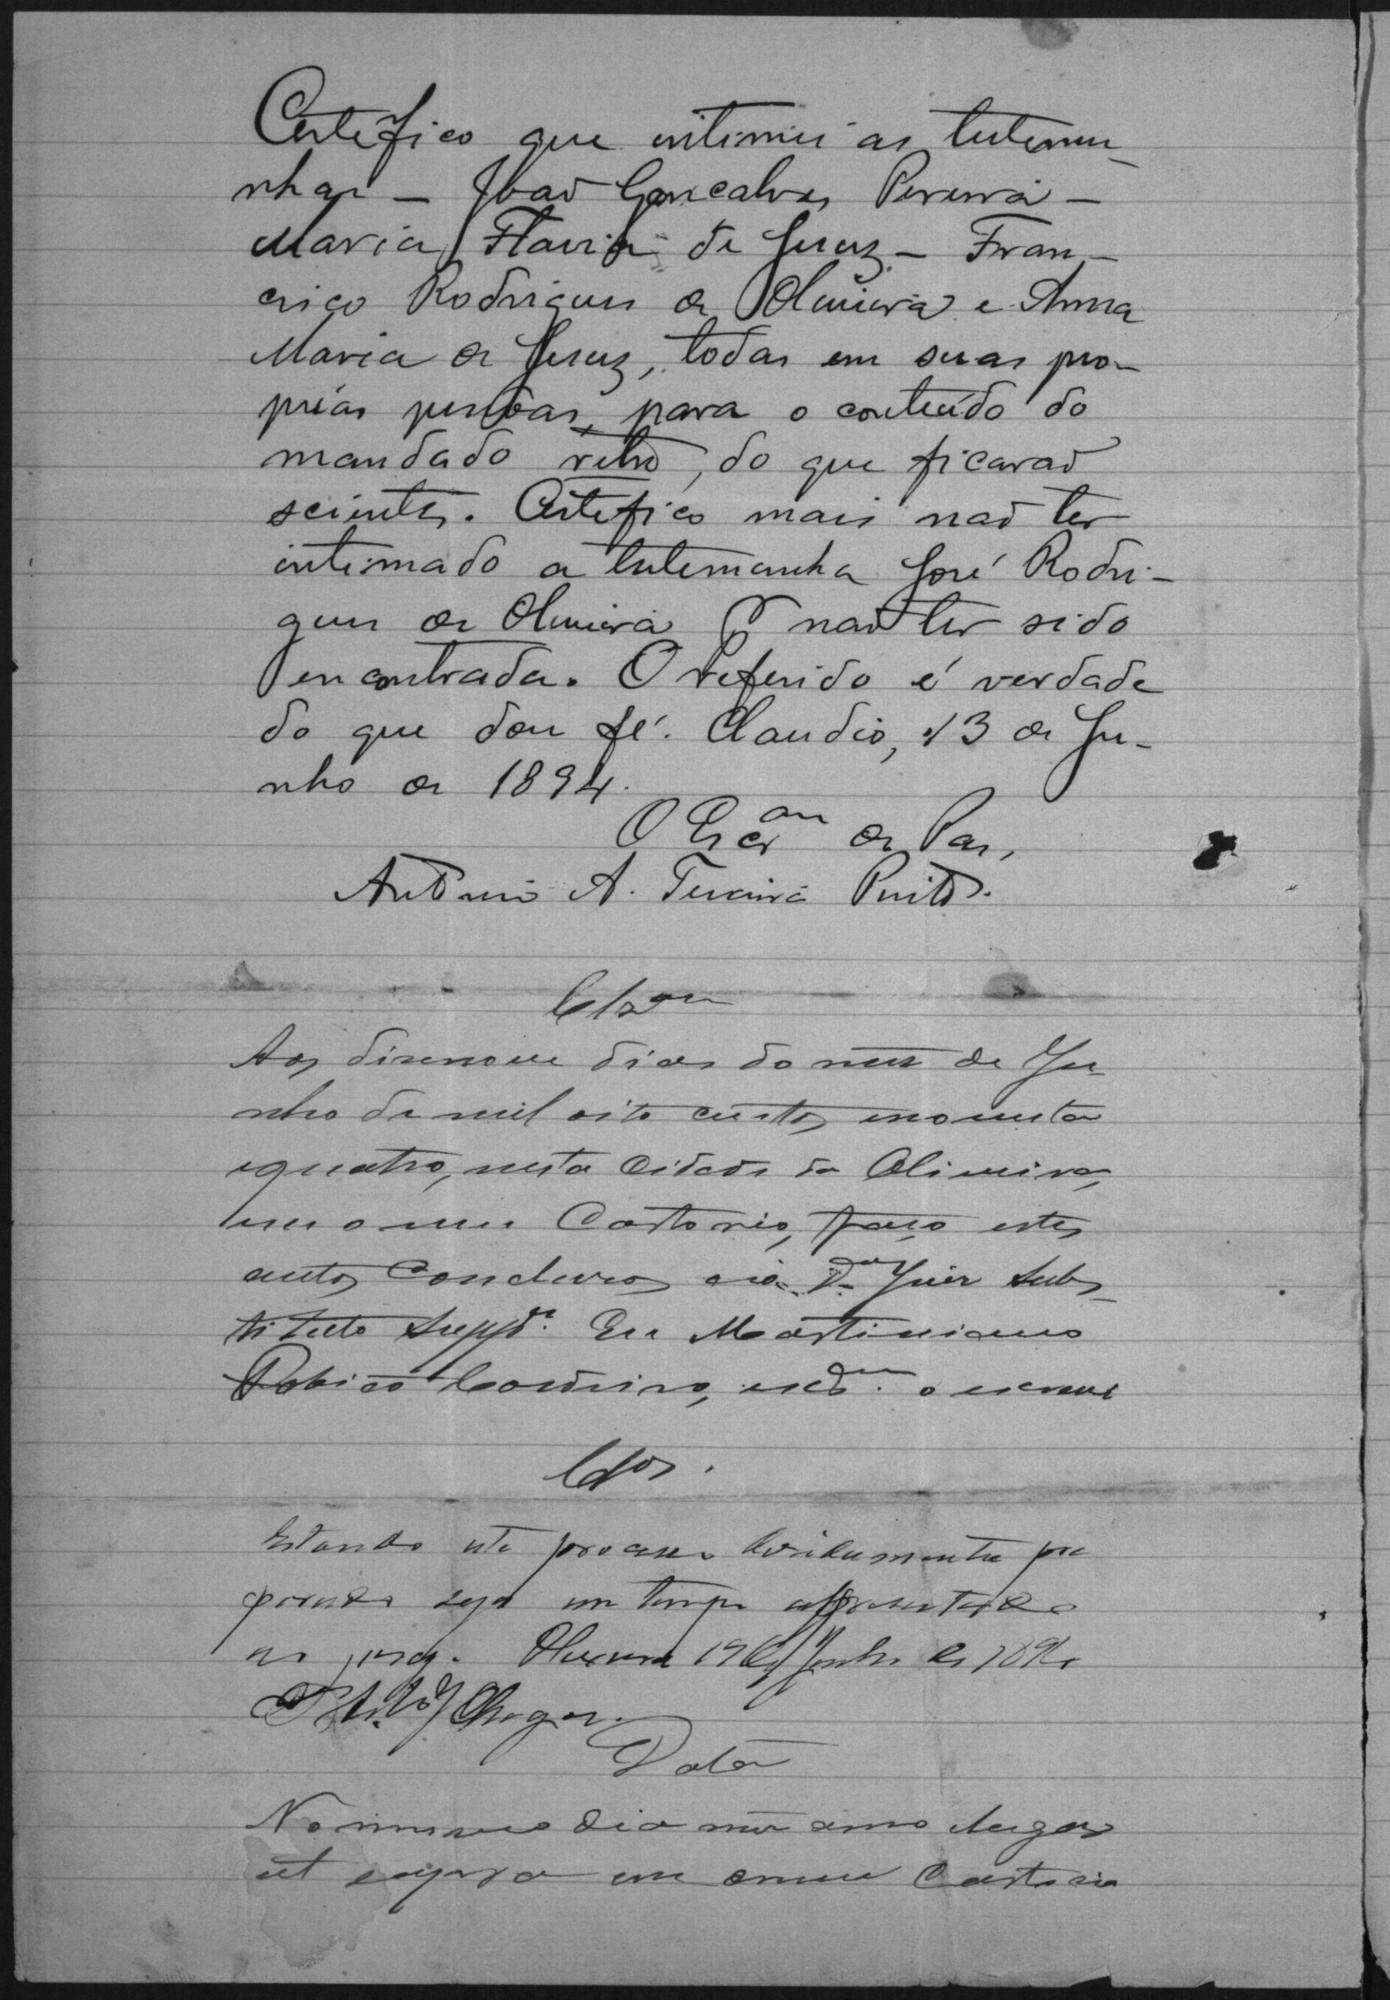 Certefico que intimei as testemu-
nhas — João Gonçalves Pereira —
Maria Flavia de Jesuz — Fran-
cisco Rodrigues de Oliveira e Anna
Maria de Jesuz, todas em suas pro-
prias pessoas, para o conteúdo do
mandado retro, do que ficarão
scientes. Certefico mais não ter
intimado a testemunha José Rodri-
gues de Oliveira p não ter sido
encontrada. O referido é verdade
do que dou fé. Claudio, 13 de Ju-
nho de 1894.
O Escram de Paz,
Antonio A. Teixeira Pinto.
Clsam
Aos disenove dias do mez de Ju-
nho de mil oito centos e noventa
e quatro, nesta Cidade da Oliveira,
em o meu Cartorio, faço estes
autos conclusos ao Dor Juiz Subs-
tituto Suppe. Eu Martiniano
Cordeiro, escram. o escrevi
Clsos.
Estando este processo devidamente pre
parado seja em tempo apresentado
ao jury. Oliveira 19 de Junho de 1894
Chagas.
Data
No mesmo dia mez anno lugar
ut supra em o meu Cartorio